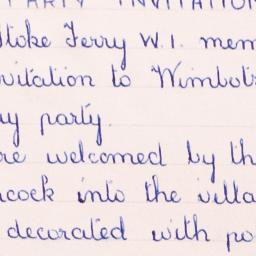 PARTY INVITATION
Stoke Ferry W.I. mem
vitation to Wimbot
party.
re welcomed by th
cock into the villa
decorated with po